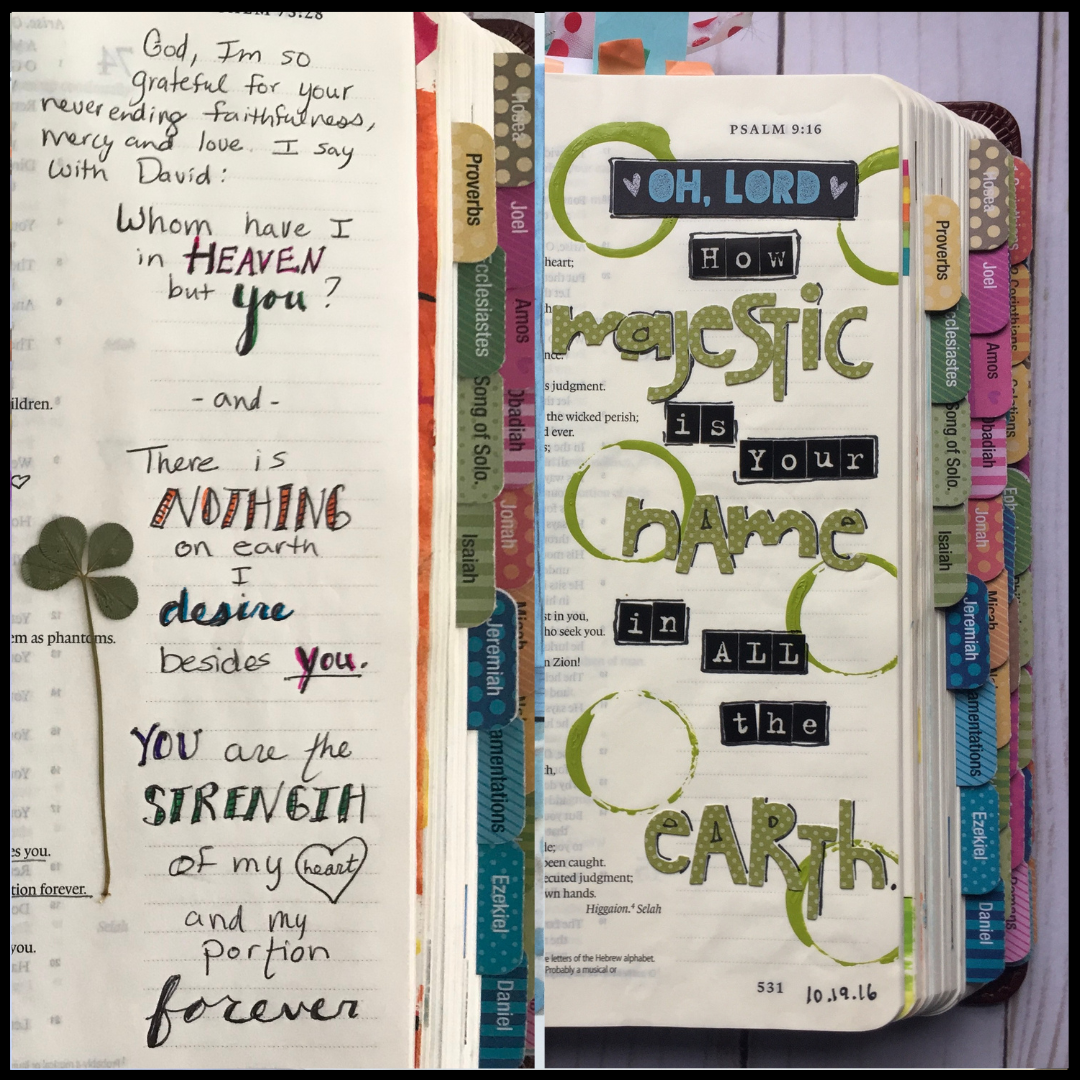 PSALM 73:28
God, I'm so
grateful for your
never ending faithfulness,
mercy and love. I say
with David:
Whom have I
in HEAVEN
but you?
-and-
There is
NOTHING
on earth
I
desire
besides you.
YOU are the
STRENGTH
of my heart
and my
portion
forever
74
ildren.
em as phantoms.
es you.
tion forever.
you.
Proverbs
Ecclesiastes
Song of Solo.
Isaiah
Jeremiah
Lamentations
Ezekiel
Daniel
Hosea
Joel
Amos
Obadiah
Jonah
Micah
PSALM 9:16
OH, LORD
How
majesTic
is
Your
nAme
in
ALL
the
eARTh.
heart;
nce.
s judgment.
the wicked perish;
d ever.
s;
st in you,
ho seek you.
n Zion!
th,
le;
been caught.
ecuted judgment;
wn hands.
Higgaion.⁴ Selah
e letters of the Hebrew alphabet.
Probably a musical or
531
10.19.16
Proverbs
Ecclesiastes
Song of Solo.
Isaiah
Jeremiah
Lamentations
Ezekiel
Daniel
Hosea
Joel
Amos
Obadiah
Jonah
Micah
Corinthians
Galatians
Romans